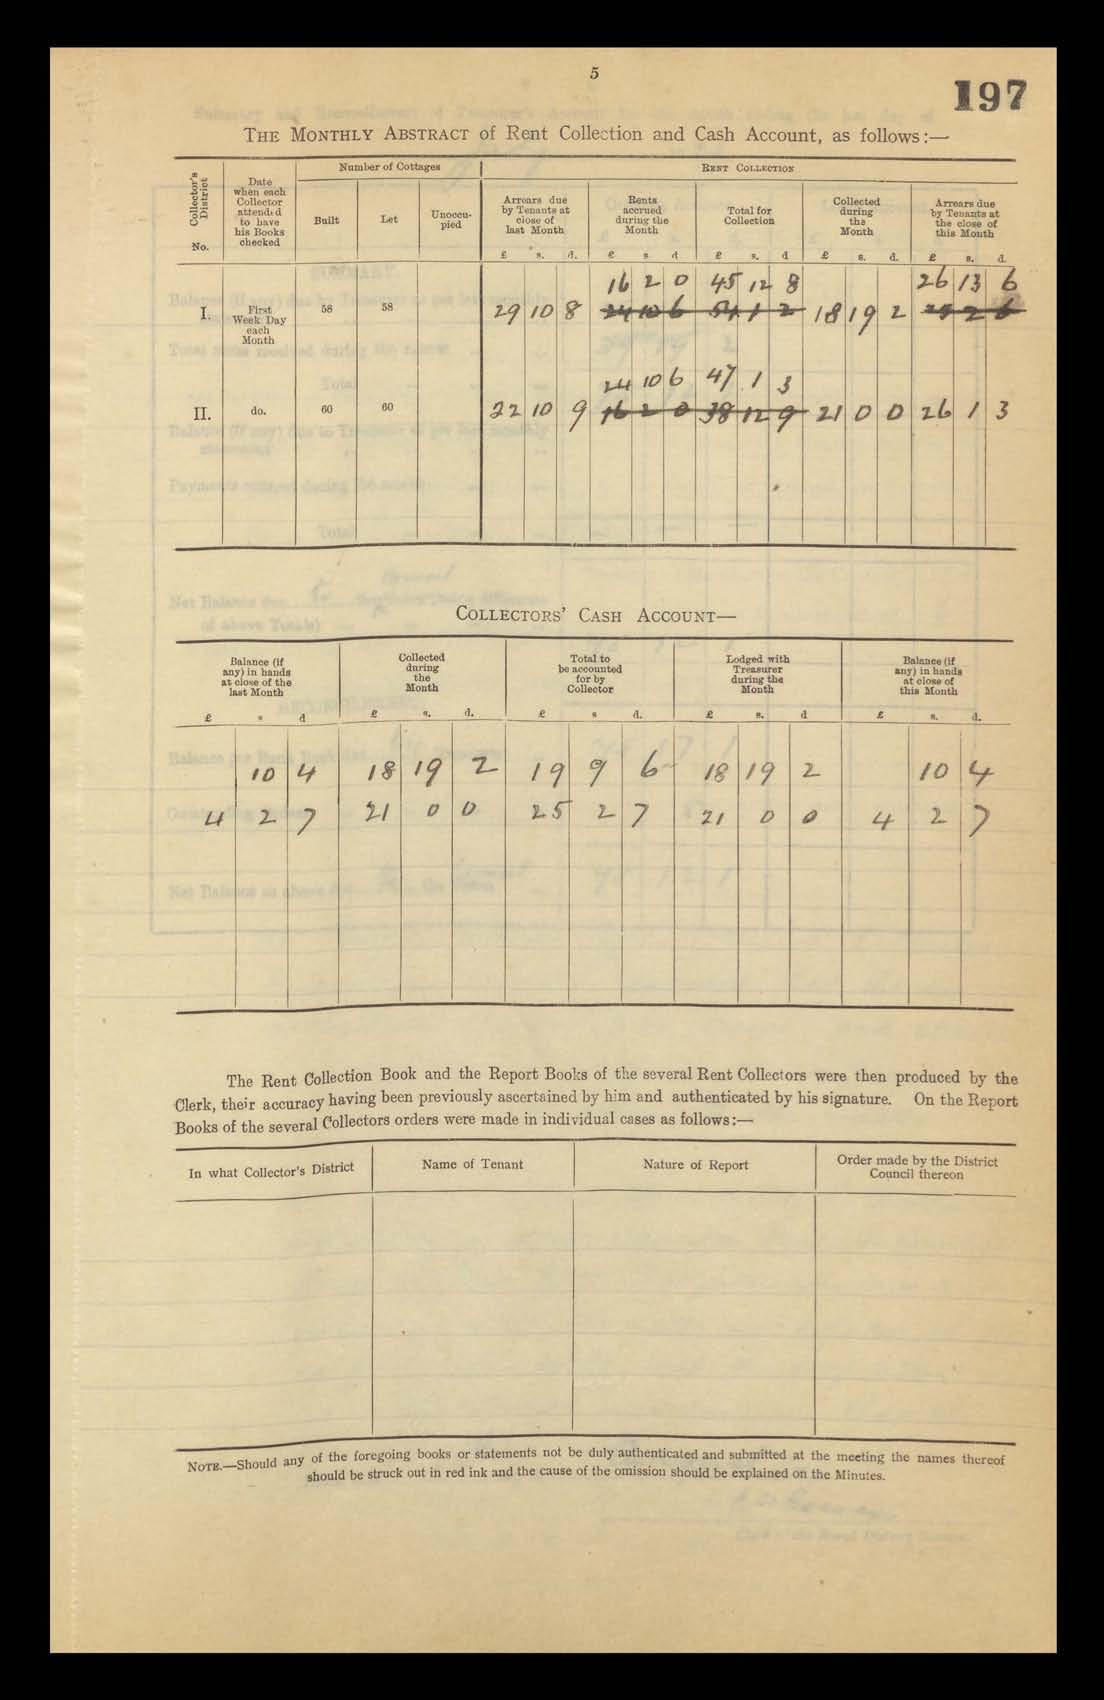 5
197
THE MONTHLY ABSTRACT of Rent Collection and Cash Account, as follows:—
Collector's District No. | Date when each Collector attended to have his Books checked | Number of Cottages | RENT COLLECTION
Built | Let | Unoccupied | Arrears due by Tenants at close of last Month | Rents accrued during the Month | Total for Collection | Collected during the Month | Arrears due by Tenants at the close of this Month
£ s. d. | £ s d | £ s. d | £ s. d. | £ s. d.
16 2 0 | 45 12 8 | 26 13 6
I. | First Week Day each Month | 58 | 58 | 29 10 8 | 24 10 6 | 54 1 2 | 18 19 2 | 25 2 6
24 10 6 | 47 1 3
II. | do. | 60 | 60 | 22 10 9 | 16 2 0 | 38 12 9 | 21 0 0 | 26 1 3
COLLECTORS' CASH ACCOUNT—
Balance (if any) in hands at close of the last Month | Collected during the Month | Total to be accounted for by Collector | Lodged with Treasurer during the Month | Balance (if any) in hands at close of this Month
£ s d | £ s. d. | £ s d. | £ s. d | £ s. d.
10 4 | 18 19 2 | 19 9 6 | 18 19 2 | 10 4
4 2 7 | 21 0 0 | 25 2 7 | 21 0 0 | 4 2 7
The Rent Collection Book and the Report Books of the several Rent Collectors were then produced by the
Clerk, their accuracy having been previously ascertained by him and authenticated by his signature. On the Report
Books of the several Collectors orders were made in individual cases as follows:—
In what Collector's District | Name of Tenant | Nature of Report | Order made by the District Council thereon
NOTE.—Should any of the foregoing books or statements not be duly authenticated and submitted at the meeting the names thereof
should be struck out in red ink and the cause of the omission should be explained on the Minutes.